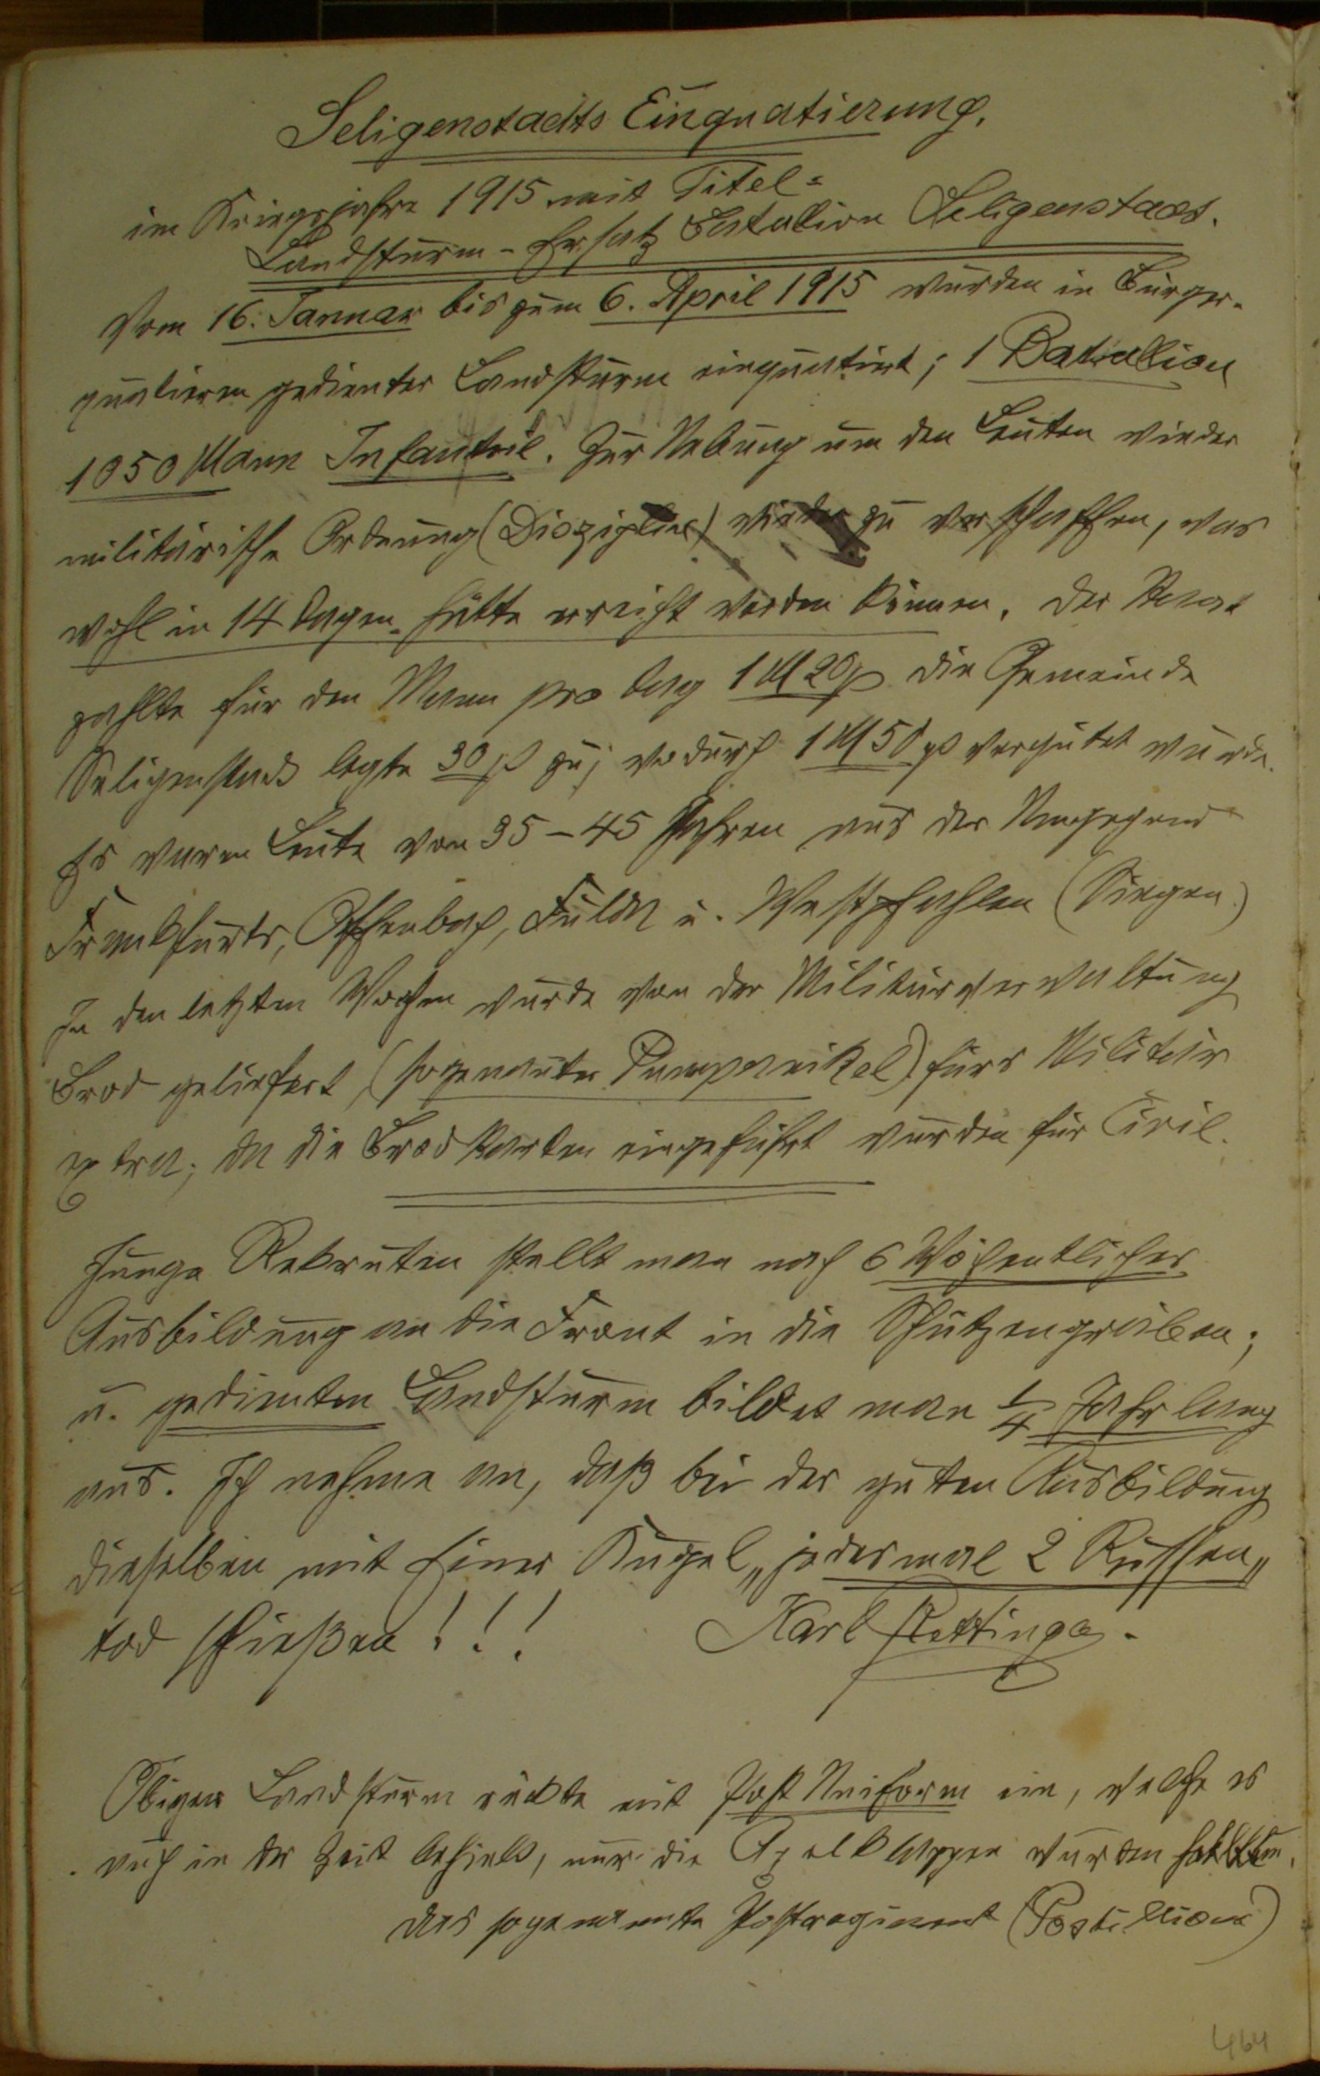 Seligenstadts Einquatierung.
im Kriegsjahre 1915 mit Titel=
Landsturm-Ersatz Batallion Seligenstadt.
Vom 16. Januar bis zum 6. April 1915 wurden in Bürger-
quatieren gedienter Landsturm einquatirt; 1 Batallion
1050 Mann Infantrie. Zur Uebung um den Leuten wieder
militärische Ordnung (Disziplin) wieder zu verschaffen, was
wohl in 14 Tagen hätte erreicht werden können. Der Staat
zahlte für den Mann pro Tag 1 M 20 ₰ die Gemeinde
Seligenstadt legte 30 ₰ zu; wodurch 1 M 50 ₰ vergütet wurde.
Es waren Leute von 35–45 Jahren aus der Umgegend
Frankfurts, Offenbach, Fulda u. Westpfahlen (Siegen.)
In den letzten Wochen wurde von der Militärverwaltung
Brod geliefert, (sogenanter Pumpernikel) fürs Militär
extra; da die Brodkarten eingeführt wurden für Civil.
Junge Rekruten stellt man nach 6 Wöchentlicher
Ausbildung an die Front in die Schützengräben;
u. gedienten Landsturm bildet man 1/4 Jahr lang
aus. Ich nehme an, daß bei der guten Ausbildung
dieselben mit Einer Kugel „jedesmal 2 Russen„
tod schießen!!!
Karl Rettinger.
Obiger Landsturm rückte mit Post Uniform ein, welche es
auch in der Zeit behielt, nur die Axelklappen wurden
das sogenannte Postregiment (Postillione)
464